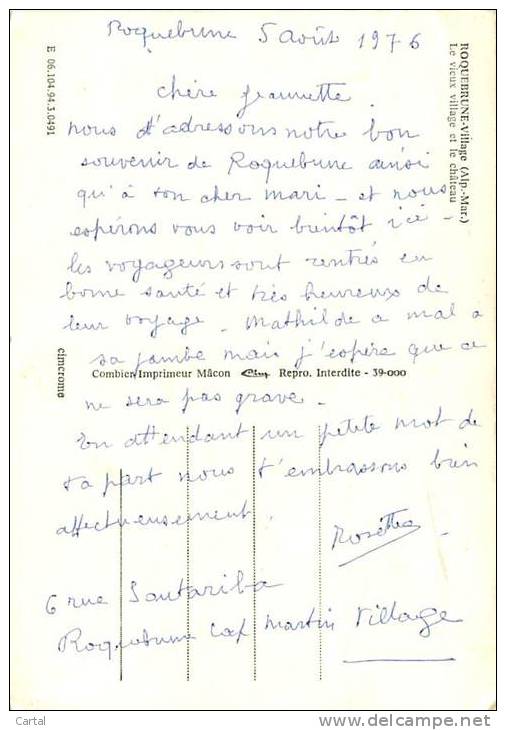 Roquebrune 5 août 1976
ROQUEBRUNE-Village (Alp.-Mar.)
Le vieux village et le château
E 06.104.94.3.0491
chère Jeannette
nous t'adressons notre bon
souvenir de Roquebrune ainsi
qu'à ton cher mari - et nous
espérons vous voir bientôt ici -
les voyageurs sont rentrés en
bonne santé et très heureux de
leur voyage - Mathilde a mal a
sa jambe mais j'espère que ce
cimcrome
Combier Imprimeur Mâcon Repro. Interdite - 39-000
ne sera pas grave -
En attendant un petite mot de
ta part nous t'embrassons bien
affectueusement
6 rue
Roquebrune Cap Martin Village
Cartal
www.delcampe.net